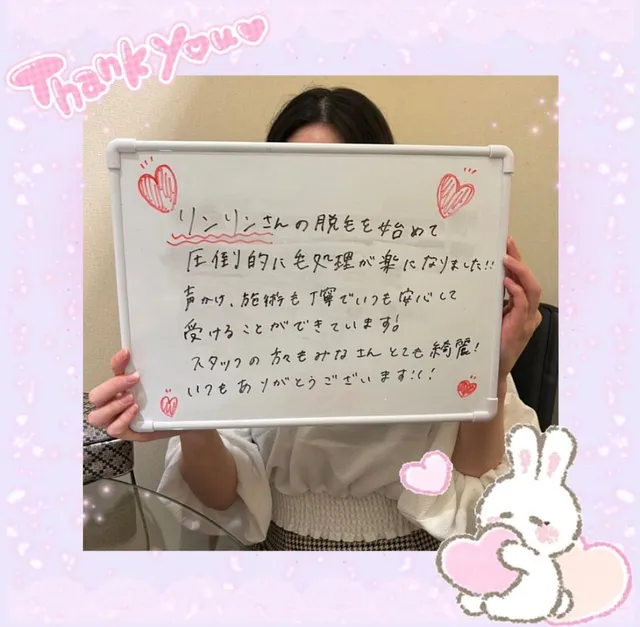 Thank You
リンリンさんの脱毛を始めて
圧倒的に毛処理が楽になりました!!
声かけ、施術も丁寧でいつも安心して
受けることができています!
スタッフの方々もみなさんとても綺麗!
いつもありがとうございます!!